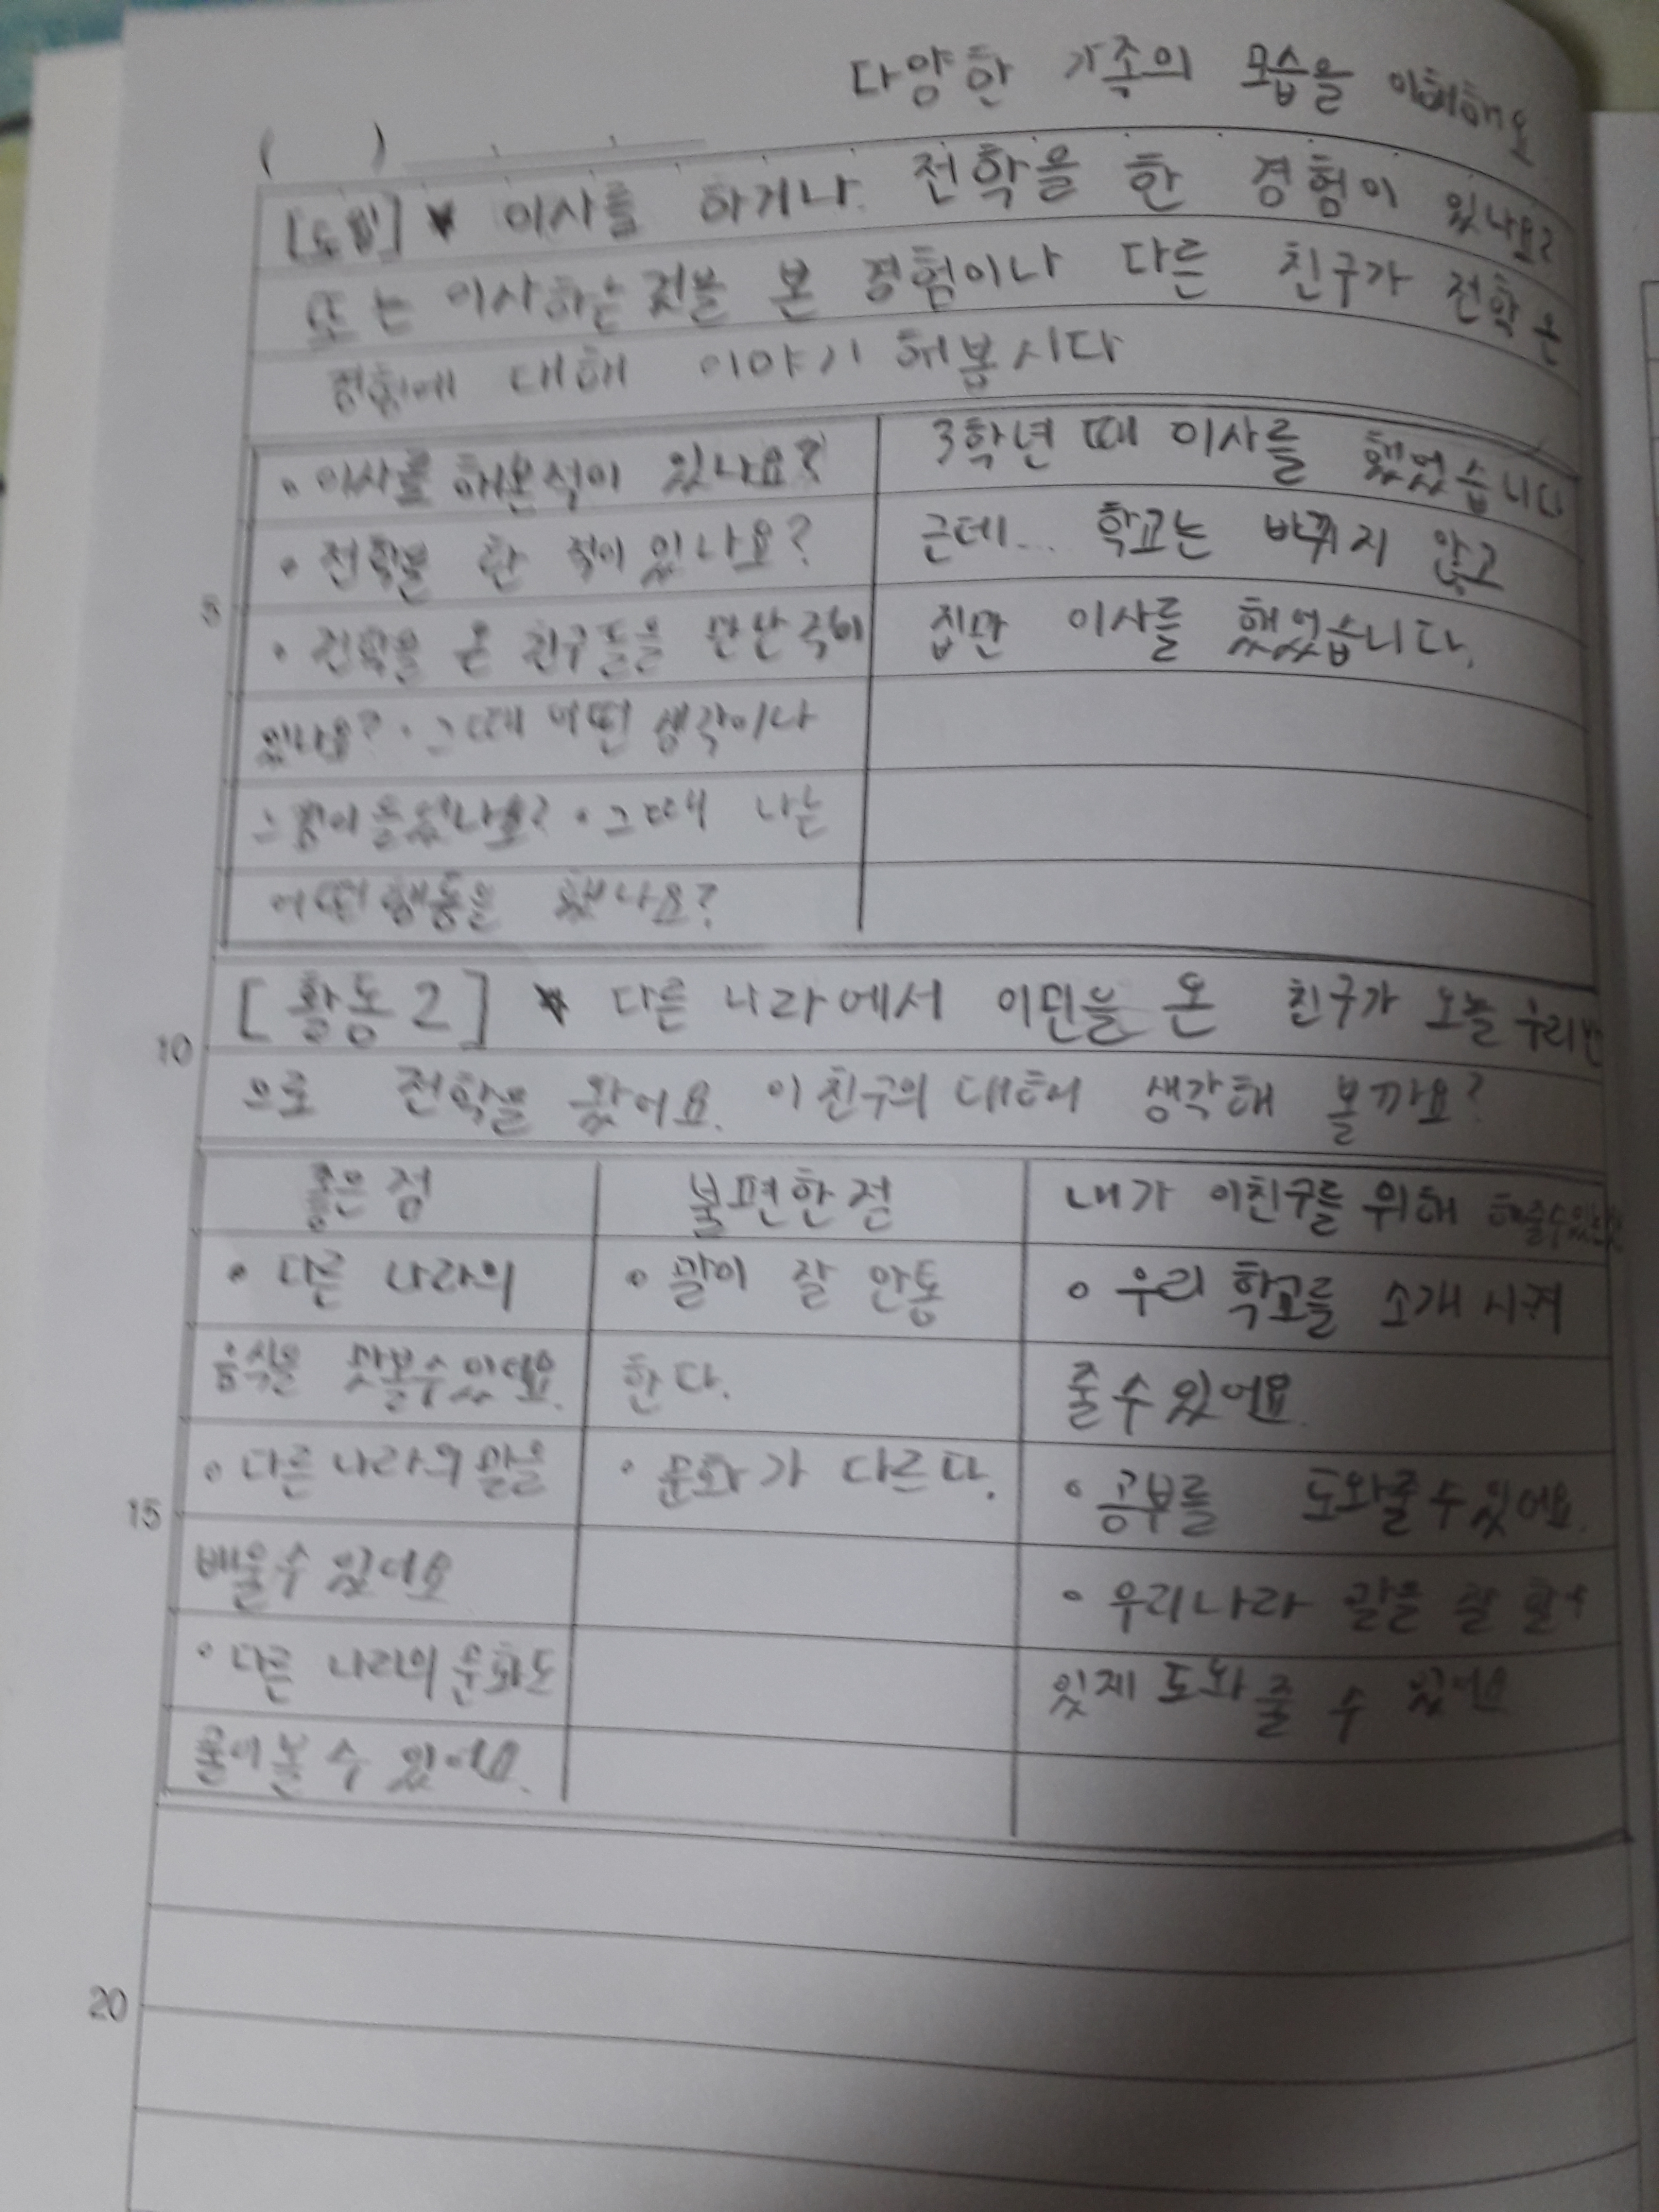 다양한 가족의 모습을 이해해요
( )
[도입] ★ 이사를 하거나 전학을 한 경험이 있나요?
또는 이사하는 것을 본 경험이나 다른 친구가 전학 온
경험에 대해 이야기 해봅시다
• 이사를 해본적이 있나요?
• 전학을 한 적이 있나요?
• 전학을 온 친구들을 만난적이
있나요? • 그때 어떤 생각이나
느낌이 들었나요? • 그때 나는
어떤 행동을 했나요?
3학년 때 이사를 했었습니다
근데... 학교는 바뀌지 않고
집만 이사를 했었습니다.
[활동 2] ★ 다른 나라에서 이민을 온 친구가 오늘 우리반
으로 전학을 왔어요. 이 친구의 대해 생각해 볼까요?
좋은 점
• 다른 나라의
음식을 맛볼수있어요.
• 다른 나라의 말을
배울수 있어요
• 다른 나라의 문화도
물어볼 수 있어요.
불편한 점
• 말이 잘 안통
한다.
• 문화가 다르다.
내가 이친구를 위해 해줄수있는
• 우리 학교를 소개시켜
줄수있어요.
• 공부를 도와줄수있어요.
• 우리나라 말을 잘 할수
있제 도와줄 수 있어요
5
10
15
20